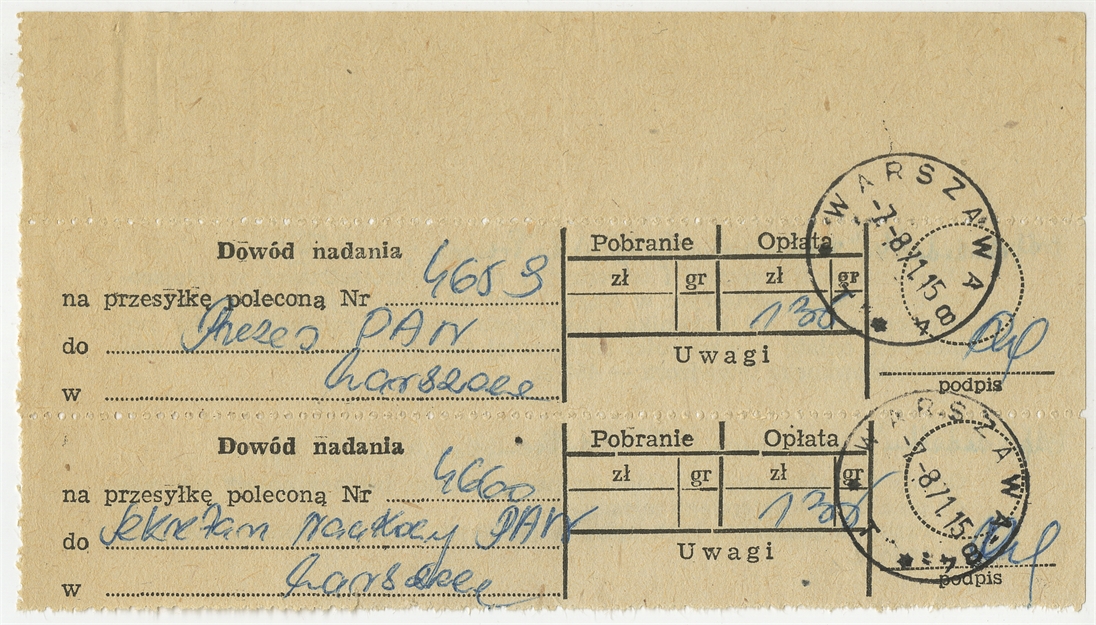 WARSZAWA
-7.-8.71.15
84
Dowód nadania
Pobranie Opłata
na przesyłkę poleconą Nr 4659
zł gr zł gr
do Prezes PAN
135
Uwagi
w Warszawa
podpis
WARSZAWA
-7.-8.71.15
84
Dowód nadania
Pobranie Opłata
na przesyłkę poleconą Nr 4660
zł gr zł gr
do Sekretarz Naukowy PAN
135
Uwagi
w Warszawa
podpis